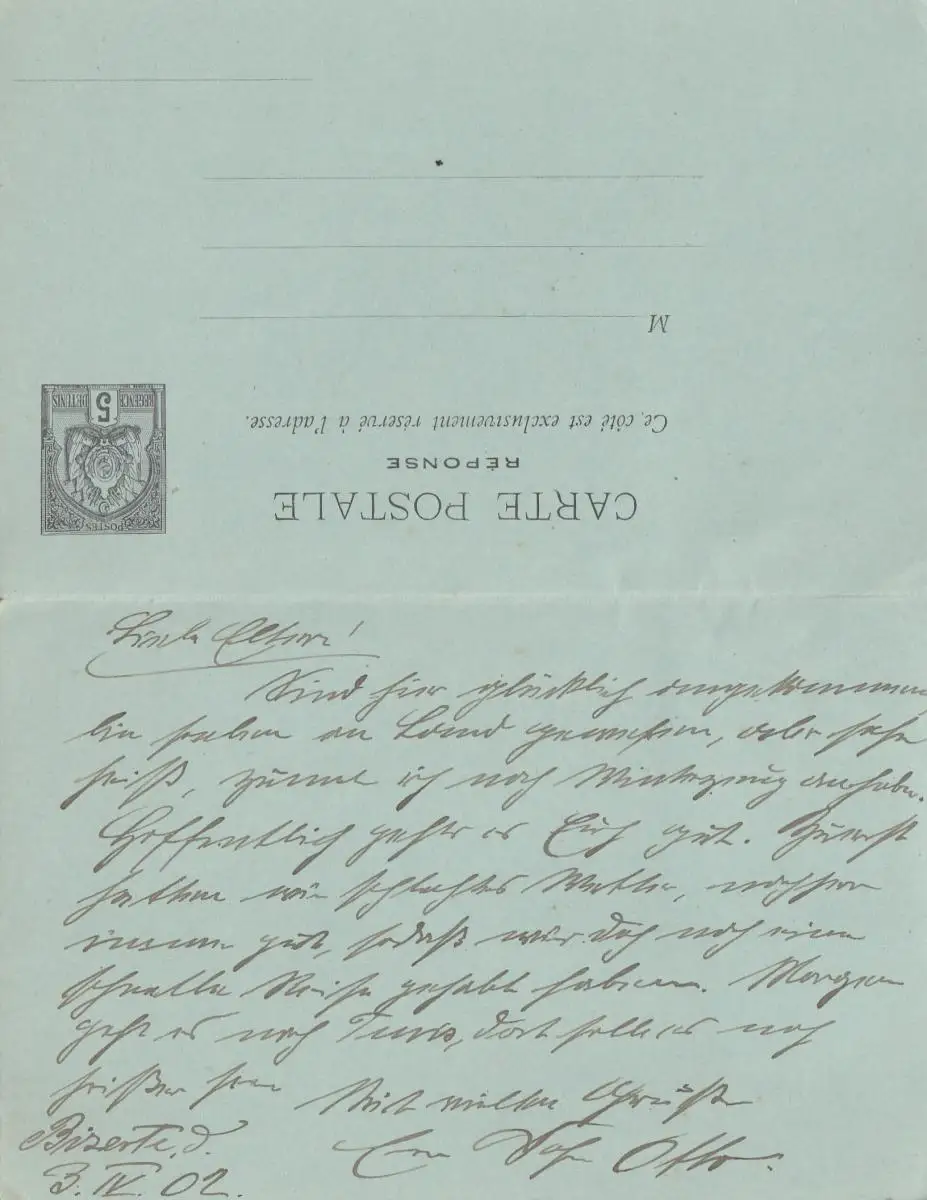 CARTE POSTALE
RÉPONSE
Ce côté est exclusivement réservé à l'adresse.
M
POSTES
REGENCE 5 DE TUNIS
Liebe Eltern!
Sind hier glücklich angekommen,
bin soeben an Land gewesen, aber sehr
heiß, zumal ich noch Winterzeug anhabe.
Hoffentlich geht es Euch gut. Zuerst
hatten wir schlechtes Wetter, nachher
immer gut, sodaß wir doch noch eine
schnelle Reise gehabt haben. Morgen
geht es nach Tunis, dort soll es noch
heißer sein
Mit vielen Grüßen
Euer Sohn Otto.
Bizerte, d.
3. IV. 02.